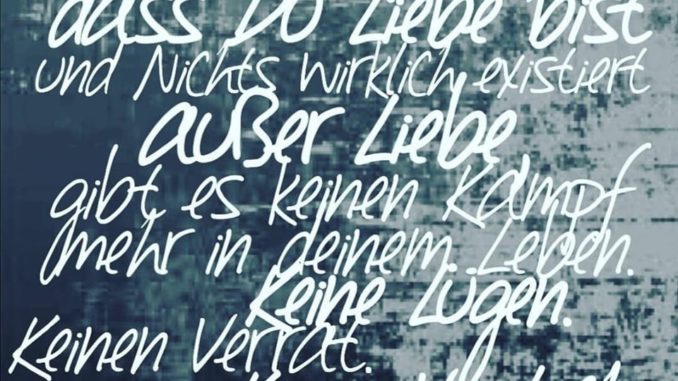 dass DU Liebe bist
und Nichts wirklich existiert
außer Liebe
gibt es keinen Kampf
mehr in deinem Leben.
Keine Lügen.
Keinen Verrat.